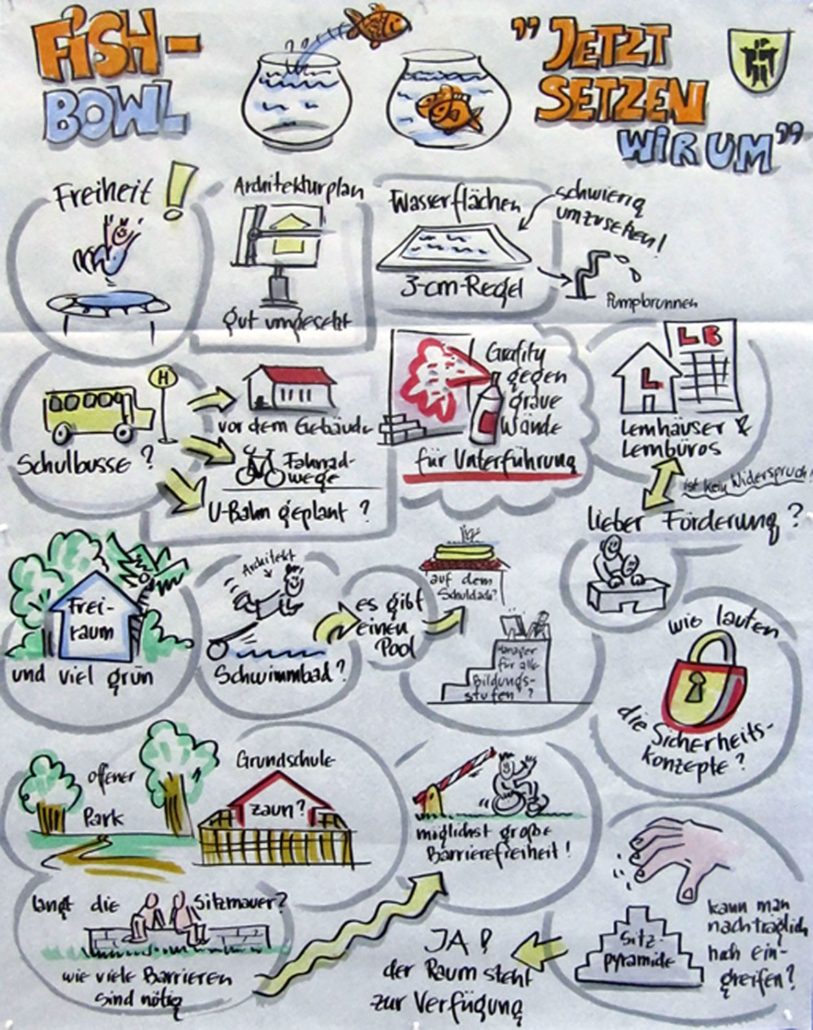 FISH-
BOWL
"JETZT
SETZEN
WIR UM"
Freiheit!
Architekturplan
gut umgesetzt
Wasserflächen
3-cm-Regel
schwierig
umzusetzen!
Pumpbrunnen
H
Schulbusse?
vor dem Gebäude
Fahrrad-
wege
U-Bahn geplant?
Grafity
gegen
graue
Wände
für Unterführung
L
LB
Lernhäuser &
Lernbüros
ist kein Widerspruch!
lieber Förderung?
Frei-
raum
und viel grün
Architekt
Schwimmbad?
es gibt
einen
Pool
auf dem
Schuldach?
Manager
für alle
Bildungs-
stufen?
wie lauten
die Sicherheits-
konzepte?
offener
Park
Grundschule
zaun?
möglichst große
Barrierefreiheit!
langt die Sitzmauer?
wie viele Barrieren
sind nötig
JA!
der Raum steht
zur Verfügung
Sitz-
pyramide
kann man
nachträglich
noch ein-
greifen?